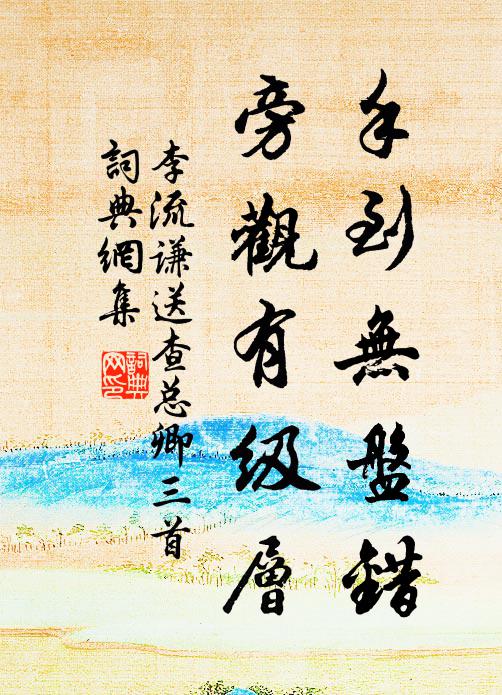 手到無盤錯
旁觀有级層
李流谦送查总卿三首
詞典網集
詞典
网印